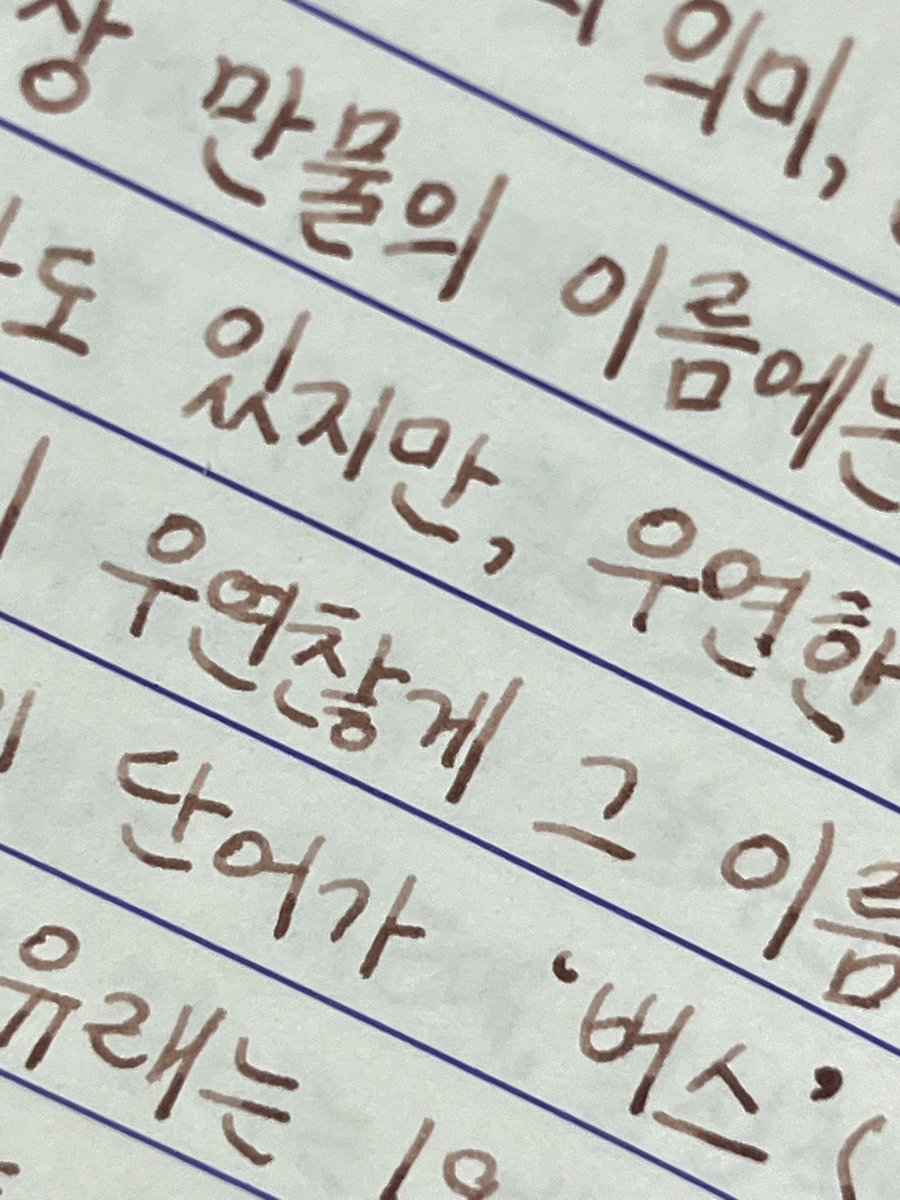 의미,
상 만물의 이름에는
도 있지만, 우연한
우연찮게 그 이름
단어가 '버스'(
유래는 19